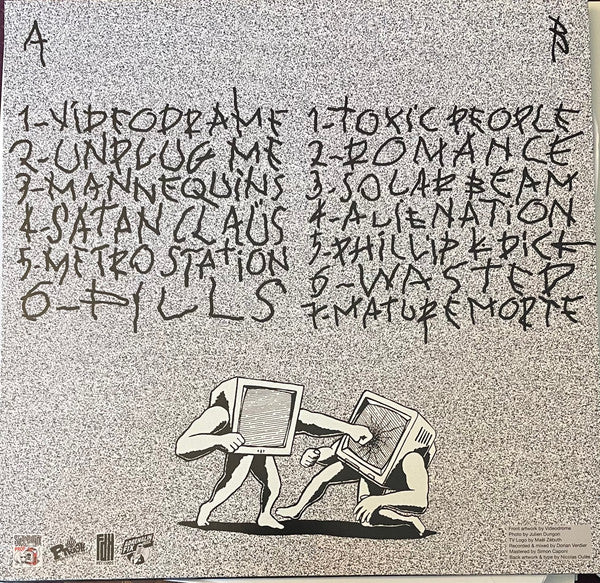 A
1-VIDEODRAME
2-UNPLUG ME
3-MANNEQUINS
4-SATAN CLAÜS
5-METRO STATION
6-PILLS
B
1-TOXIC PEOPLE
2-ROMANCE
3-SOLAR BEAM
4-ALIENATION
5-PHILLIP K DICK
6-WASTED
7-NATURE MORTE
Photo by Julien Dungon
TV Logo by Maël Zébuth
Recorded & mixed by Dorian Verdier
Mastered by Simon Capony
Back artwork & type by Nicolas Oulès